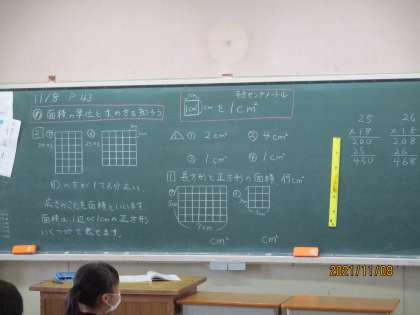 11/8 P43
面積の単位と求め方を知ろう
平方センチメートル
1cm² を 1cm²
① 2cm² ② 4cm²
③ 1cm² ④ 1cm²
の方が1マス分広い
広さのことを面積といいます
面積は1辺が1cmの正方形
いくつ分で表せます。
① 長方形と正方形の面積
7cm
cm² cm²
25
×18
200
25
450
26
×18
208
26
468
2021/11/08